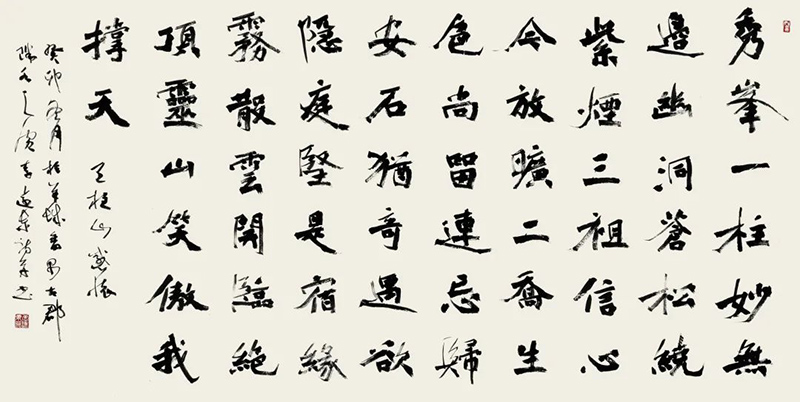 秀峯一柱妙無
邊幽洞蒼松繞
紫煙三祖信心
今放曠二喬生
色尚留連忘歸
安石猶奇遇欲
隱庭堅是宿緣
霧散雲開臨絕
頂靈山笑傲我
撑天 天柱山感懷
癸卯月於羊城番禺古郡